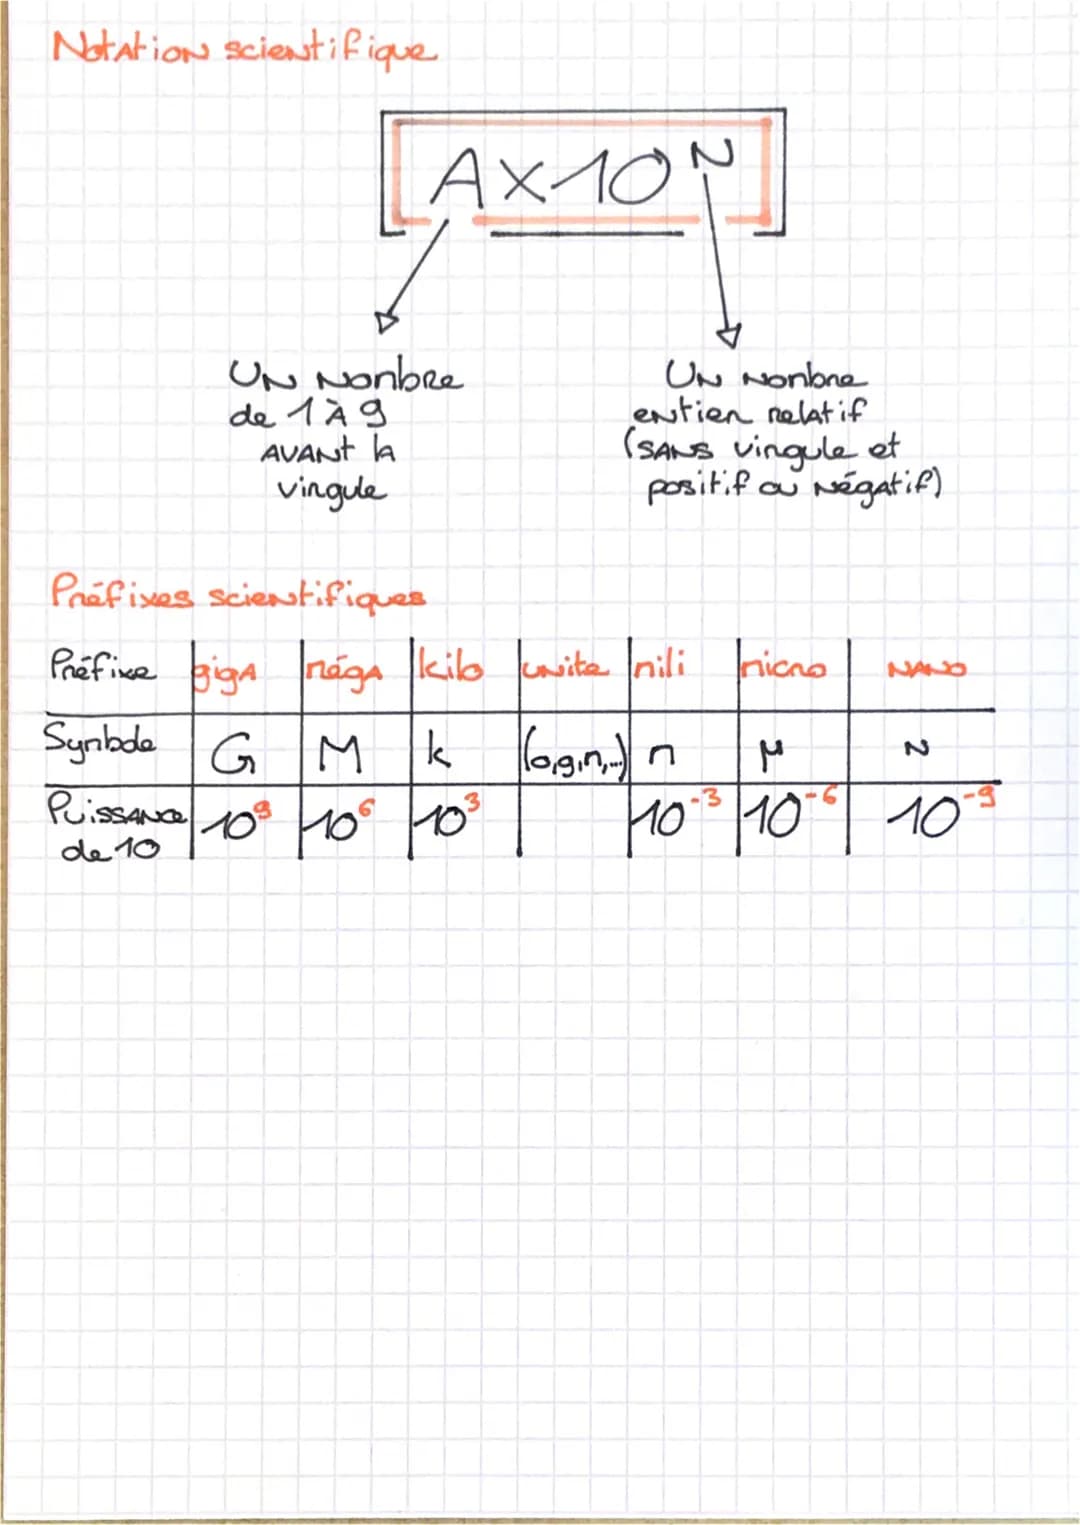 Notation scientifique
A×10ᴺ
Un nombre
de 1 à 9
avant la
virgule
Un nombre
entier relatif
(sans virgule et
positif ou négatif)
Préfixes scientifiques
Préfixe giga méga kilo unite mili micro nano
Symbole G M k (o,g,m,...) m μ n
Puissance de 10 10⁹ 10⁶ 10³ 10⁻³ 10⁻⁶ 10⁻⁹